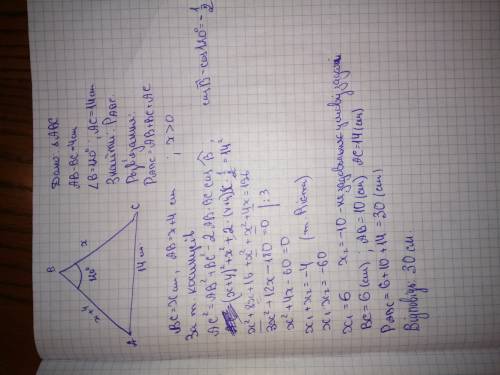 Дано: △ABC
AB-BC=4cm
∠B=120°, AC=14cm
Знайти: P ABC.
Розв'язання:
P ABC=AB+BC+AC
B
120°
x
x+4
A
14 cm
C
BC=x cm, AB=x+4 cm ; x>0
За т. косинусів
AC²=AB²+BC²-2AB·BC·cos B ; cos B=cos120°=-1/2
(x+4)²+x²+2·(x+4)x·1/2=14²
x²+8x+16+x²+x²+4x=196
3x²+12x-180=0 |:3
x²+4x-60=0
x₁+x₂=-4 (т. Вієта)
x₁x₂=-60
x₁=6 x₂=-10 - не задовольняє умову задачі
BC=6(cm) ; AB=10(cm) AC=14(cm)
P ABC=6+10+14=30(cm)
Відповідь: 30 cm